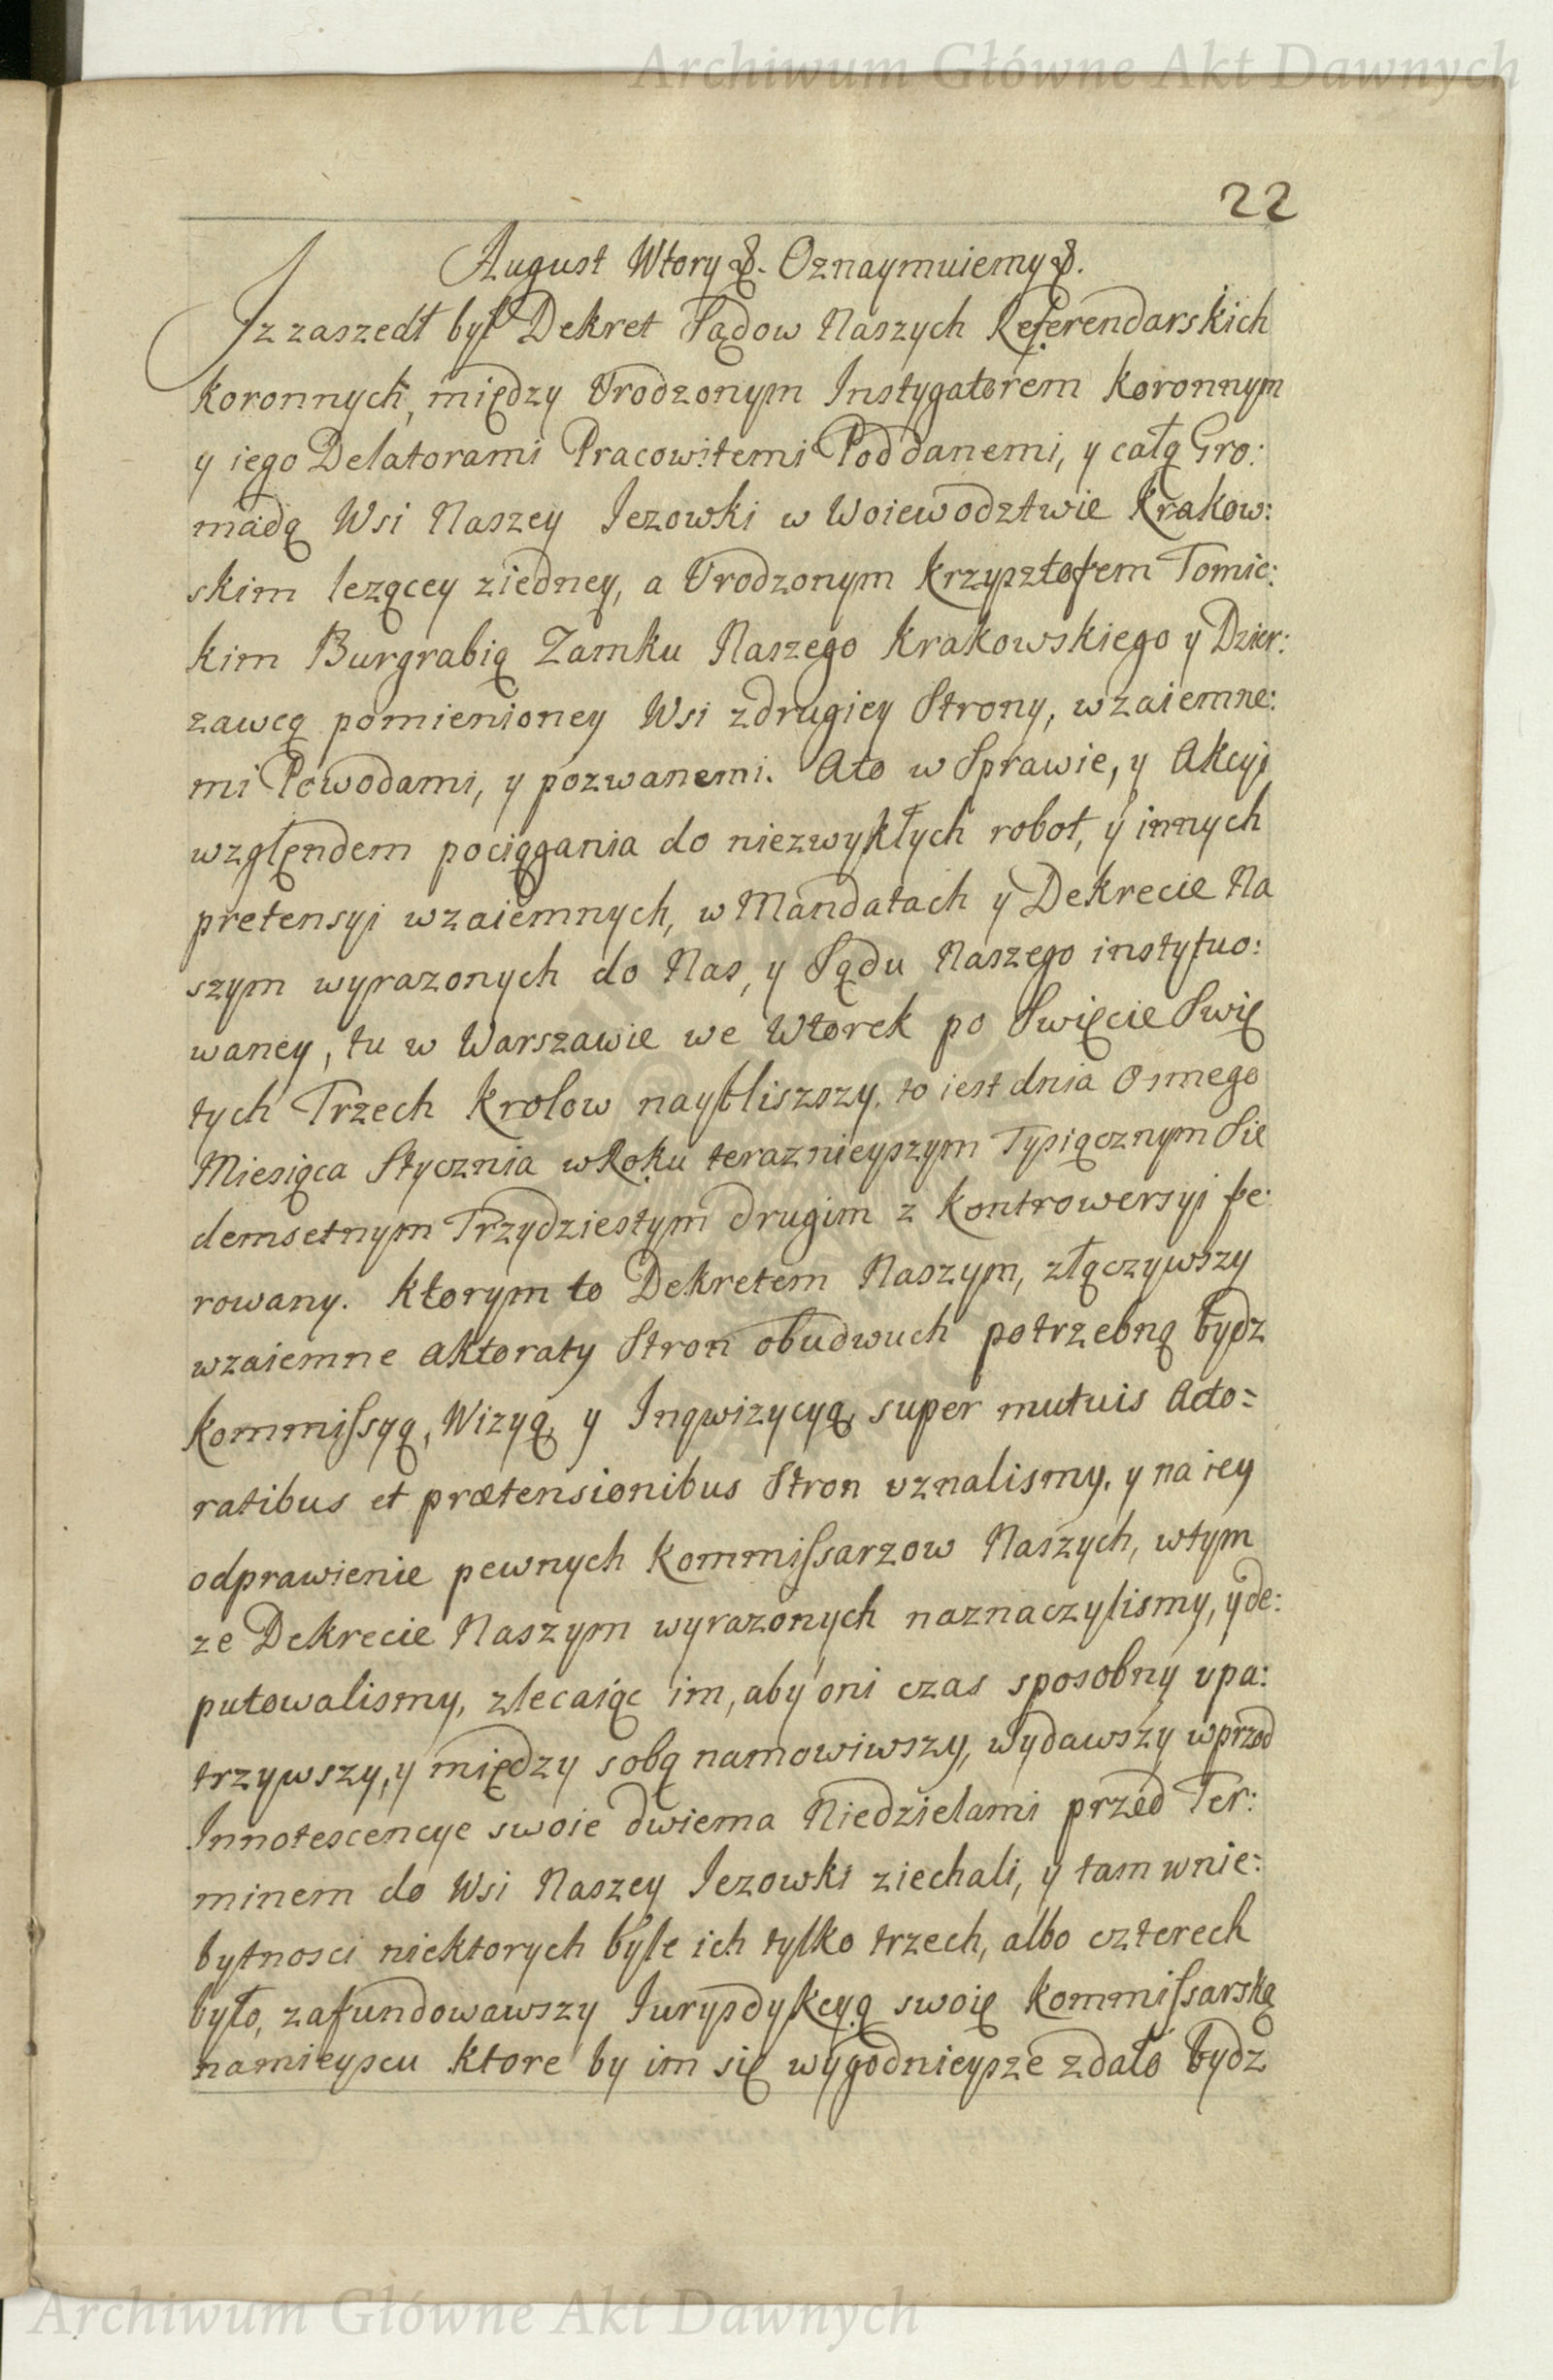 Archiwum Główne Akt Dawnych
22
August Wtory &. Oznaymuiemy &.
Iz zaszedł był Dekret Sądow Naszych Referendarskich
Koronnych, między Vrodzonym Instygatorem Koronnym
y iego Delatorami Pracowitemi Poddanemi, y całą Gro:
madą Wsi Naszey Iezowki w Woiewodztwie Krakow:
skim lezącey ziedney, a Vrodzonym Krzysztofem Tomic:
kim Burgrabią Zamku Naszego Krakowskiego y Dzier:
zawcą pomienioney Wsi zdrugiey Strony, wzaiemne:
mi Powodami, y pozwanemi. Ato w Sprawie, y Akcyi
względem pociągania do niezwykłych robot, y innych
pretensyi wzaiemnych, w Mandatach y Dekrecie Na
szym wyrazonych do Nas, y Sądu Naszego instytuo:
waney, tu w Warszawie we Wtorek po Swięcie Swię
tych Trzech Krolow naybliszszy. to iest dnia Osmego
Miesiąca Stycznia wRoku teraznieyszym Tysiącznym Sie
demsetnym Trzydziestym drugim z Kontrowersyi fe:
rowany. Ktorym to Dekretem Naszym, złączywszy
wzaiemne aktoraty Stron obudwuch potrzebną bydz
Kommissyą, Wizyą, y Inqwizycyą, super mutuis Acto=
ratibus et prætensionibus Stron vznalismy, y na iey
odprawienie pewnych Kommissarzow Naszych, wtym
ze Dekrecie Naszym wyrazonych naznaczylismy, y de:
putowalismy, zlecaiąc im, aby oni czas sposobny vpa:
trzywszy, y między sobą namowiwszy, wydawszy wprzod
Innotescencye swoie dwiema Niedzielami przed Ter:
minem do Wsi Naszey Iezowki ziechali, y tam wnie:
bytnosci niektorych byle ich tylko trzech, albo czterech
było, zafundowawszy Iurysdykcyą swoię Kommissarską
namieyscu ktore by im się wygodnieysze zdało bydz
Archiwum Główne Akt Dawnych